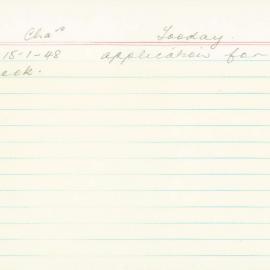 Chas Tooday.
15-1-48 application for
ook.